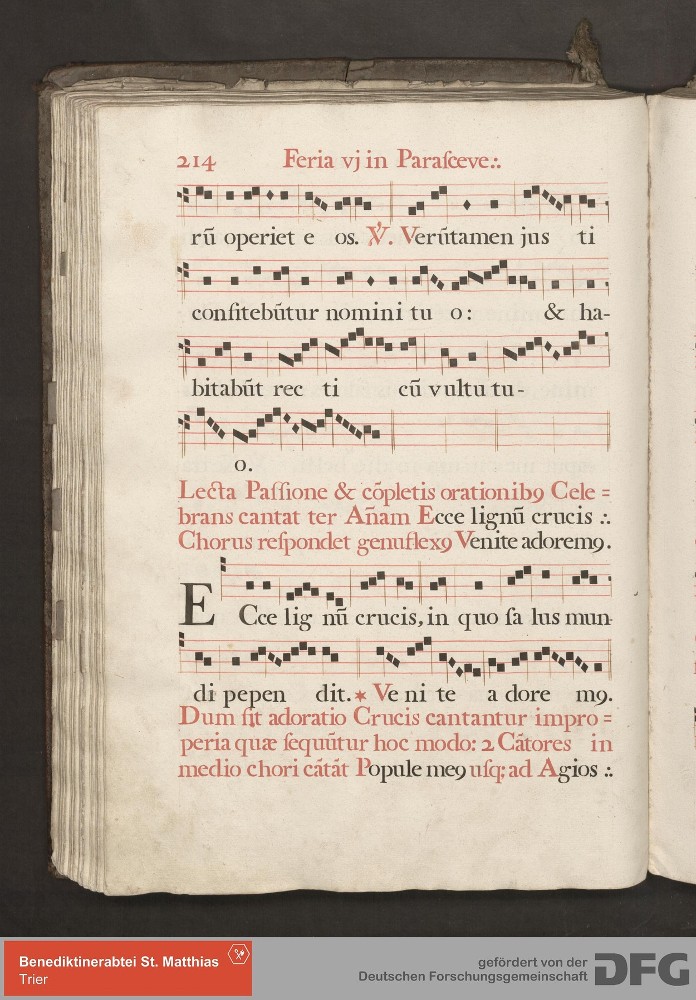 214 Feria vj in Paraſceve.:.
rū operiet e os. ℣. Verūtamen jus ti
conſitebūtur nomini tu o: & ha-
bitabūt rec ti cū vultu tu-
o.
Lecta Paſſione & cōpletis orationibꝯ Cele=
brans cantat ter Añam Ecce lignū crucis .:.
Chorus reſpondet genuflexꝯ Venite adoremꝯ.
ECce lig nū crucis, in quo ſa lus mun-
di pepen dit. * Ve ni te a dore mꝯ.
Dum ſit adoratio Crucis cantantur impro=
peria quæ ſequūtur hoc modo: 2 Cātores in
medio chori cātāt Popule meꝯ uſq: ad Agios .:.
Benediktinerabtei St. Matthias
Trier
gefördert von der
Deutschen Forschungsgemeinschaft
DFG